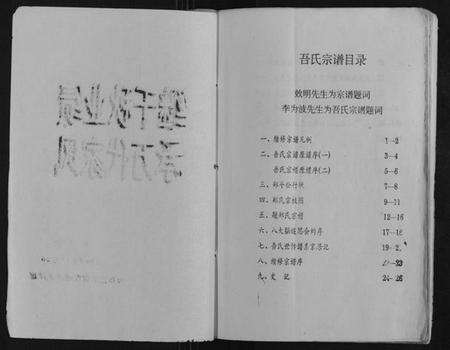 继千秋业绩
承万代家风
吾氏宗谱目录
效明先生为宗谱题词
李为波先生为吾氏宗谱题词
一、续修宗谱凡例 1-2
二、吾氏宗谱原谱序(一) 3-4
吾氏宗谱原谱序(二) 5-6
三、邬千公行状 7-8
四、邬氏宗枝图 9-11
五、题邬氏宗谱 12-16
六、八大 17-18
七、吾氏世传谱系 19-2
八、续修宗谱序 22-23
九、史记 24-26